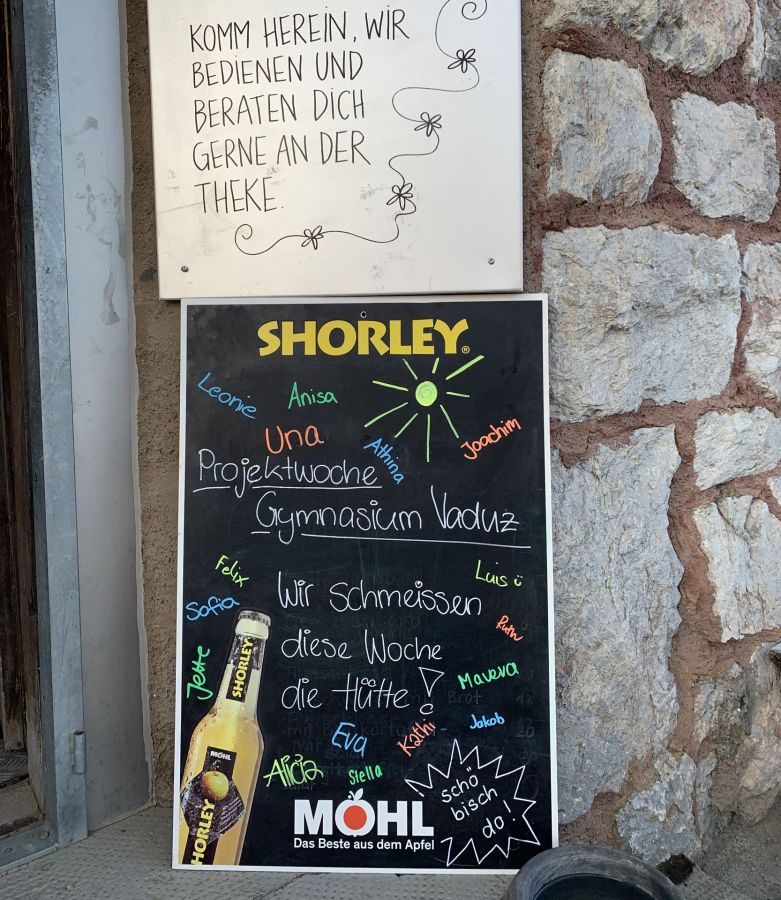 KOMM HEREIN, WIR
BEDIENEN UND
BERATEN DICH
GERNE AN DER
THEKE.
SHORLEY®
Leonie
Anisa
Una
Athina
Joachim
Projektwoche
Gymnasium Vaduz
Felix
Luis
Sofia
Wir schmeissen
Ruth
diese Woche
Jette
Maveva
die Hütte!
Kathi
Jakob
Eva
Alicia
Stella
schö
bisch
do!
SHORLEY
MÖHL
SHORLEY
MÖHL
Das Beste aus dem Apfel